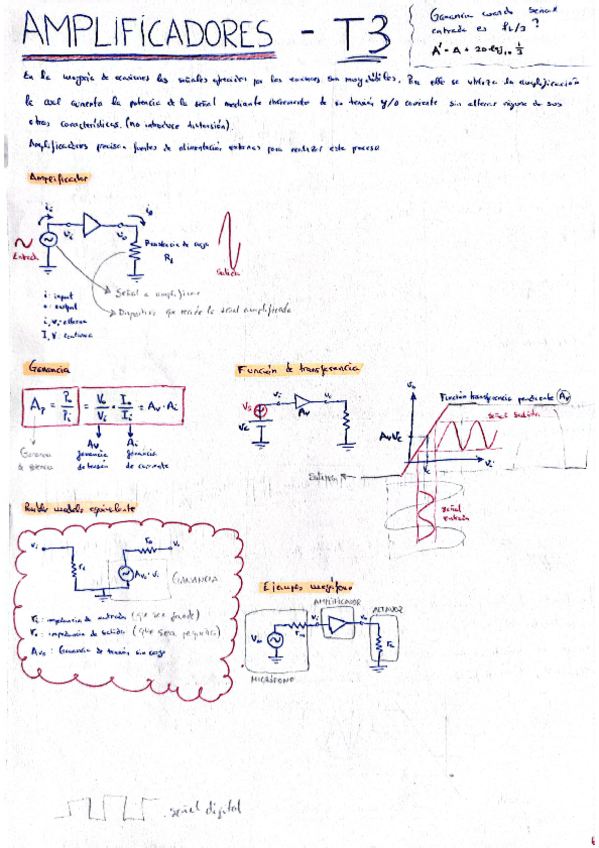 AMPLIFICADORES - T3
Ganancia cuando señal
entrada es fL/3 ?
A' = A + 20 log10 1/3
En la mayoría de ocasiones las señales ofrecidas por los sensores son muy débiles. Por ello se utiliza la amplificación
la cual aumenta la potencia de la señal mediante incremento de su tensión y/o corriente sin alterar ninguna de sus
otras características. (no introduce distorsión).
Amplificadores precisan fuentes de alimentación externas para realizar este proceso
Amplificador
ii
io
vi
vo
Entrada
Resistencia de carga
RL
Salida
i: input
o: output
i, v: alterna
I, V: continua
Señal a amplificar
Dispositivo que recibe la señal amplificada
Ganancia
Ap = Po/Pi = Vo/Vi · Io/Ii = Av · Ai
Ganancia
de potencia
Av
ganancia
de tensión
Ai
ganancia
de corriente
Función de transferencia
vi
vo
Vs
Av
Vo
Función transferencia pendiente Av
señal salida
Vi
señal
entrada
Doble modelo equivalente
vi
ro
vo
ri
Avo · vi
GANANCIA
ri: impedancia de entrada (que sea grande)
ro: impedancia de salida (que sea pequeña)
Avo: Ganancia de tensión sin carga
Ejemplo megáfono
AMPLIFICADOR
ALTAVOZ
vi
vo
MICRÓFONO
señal digital